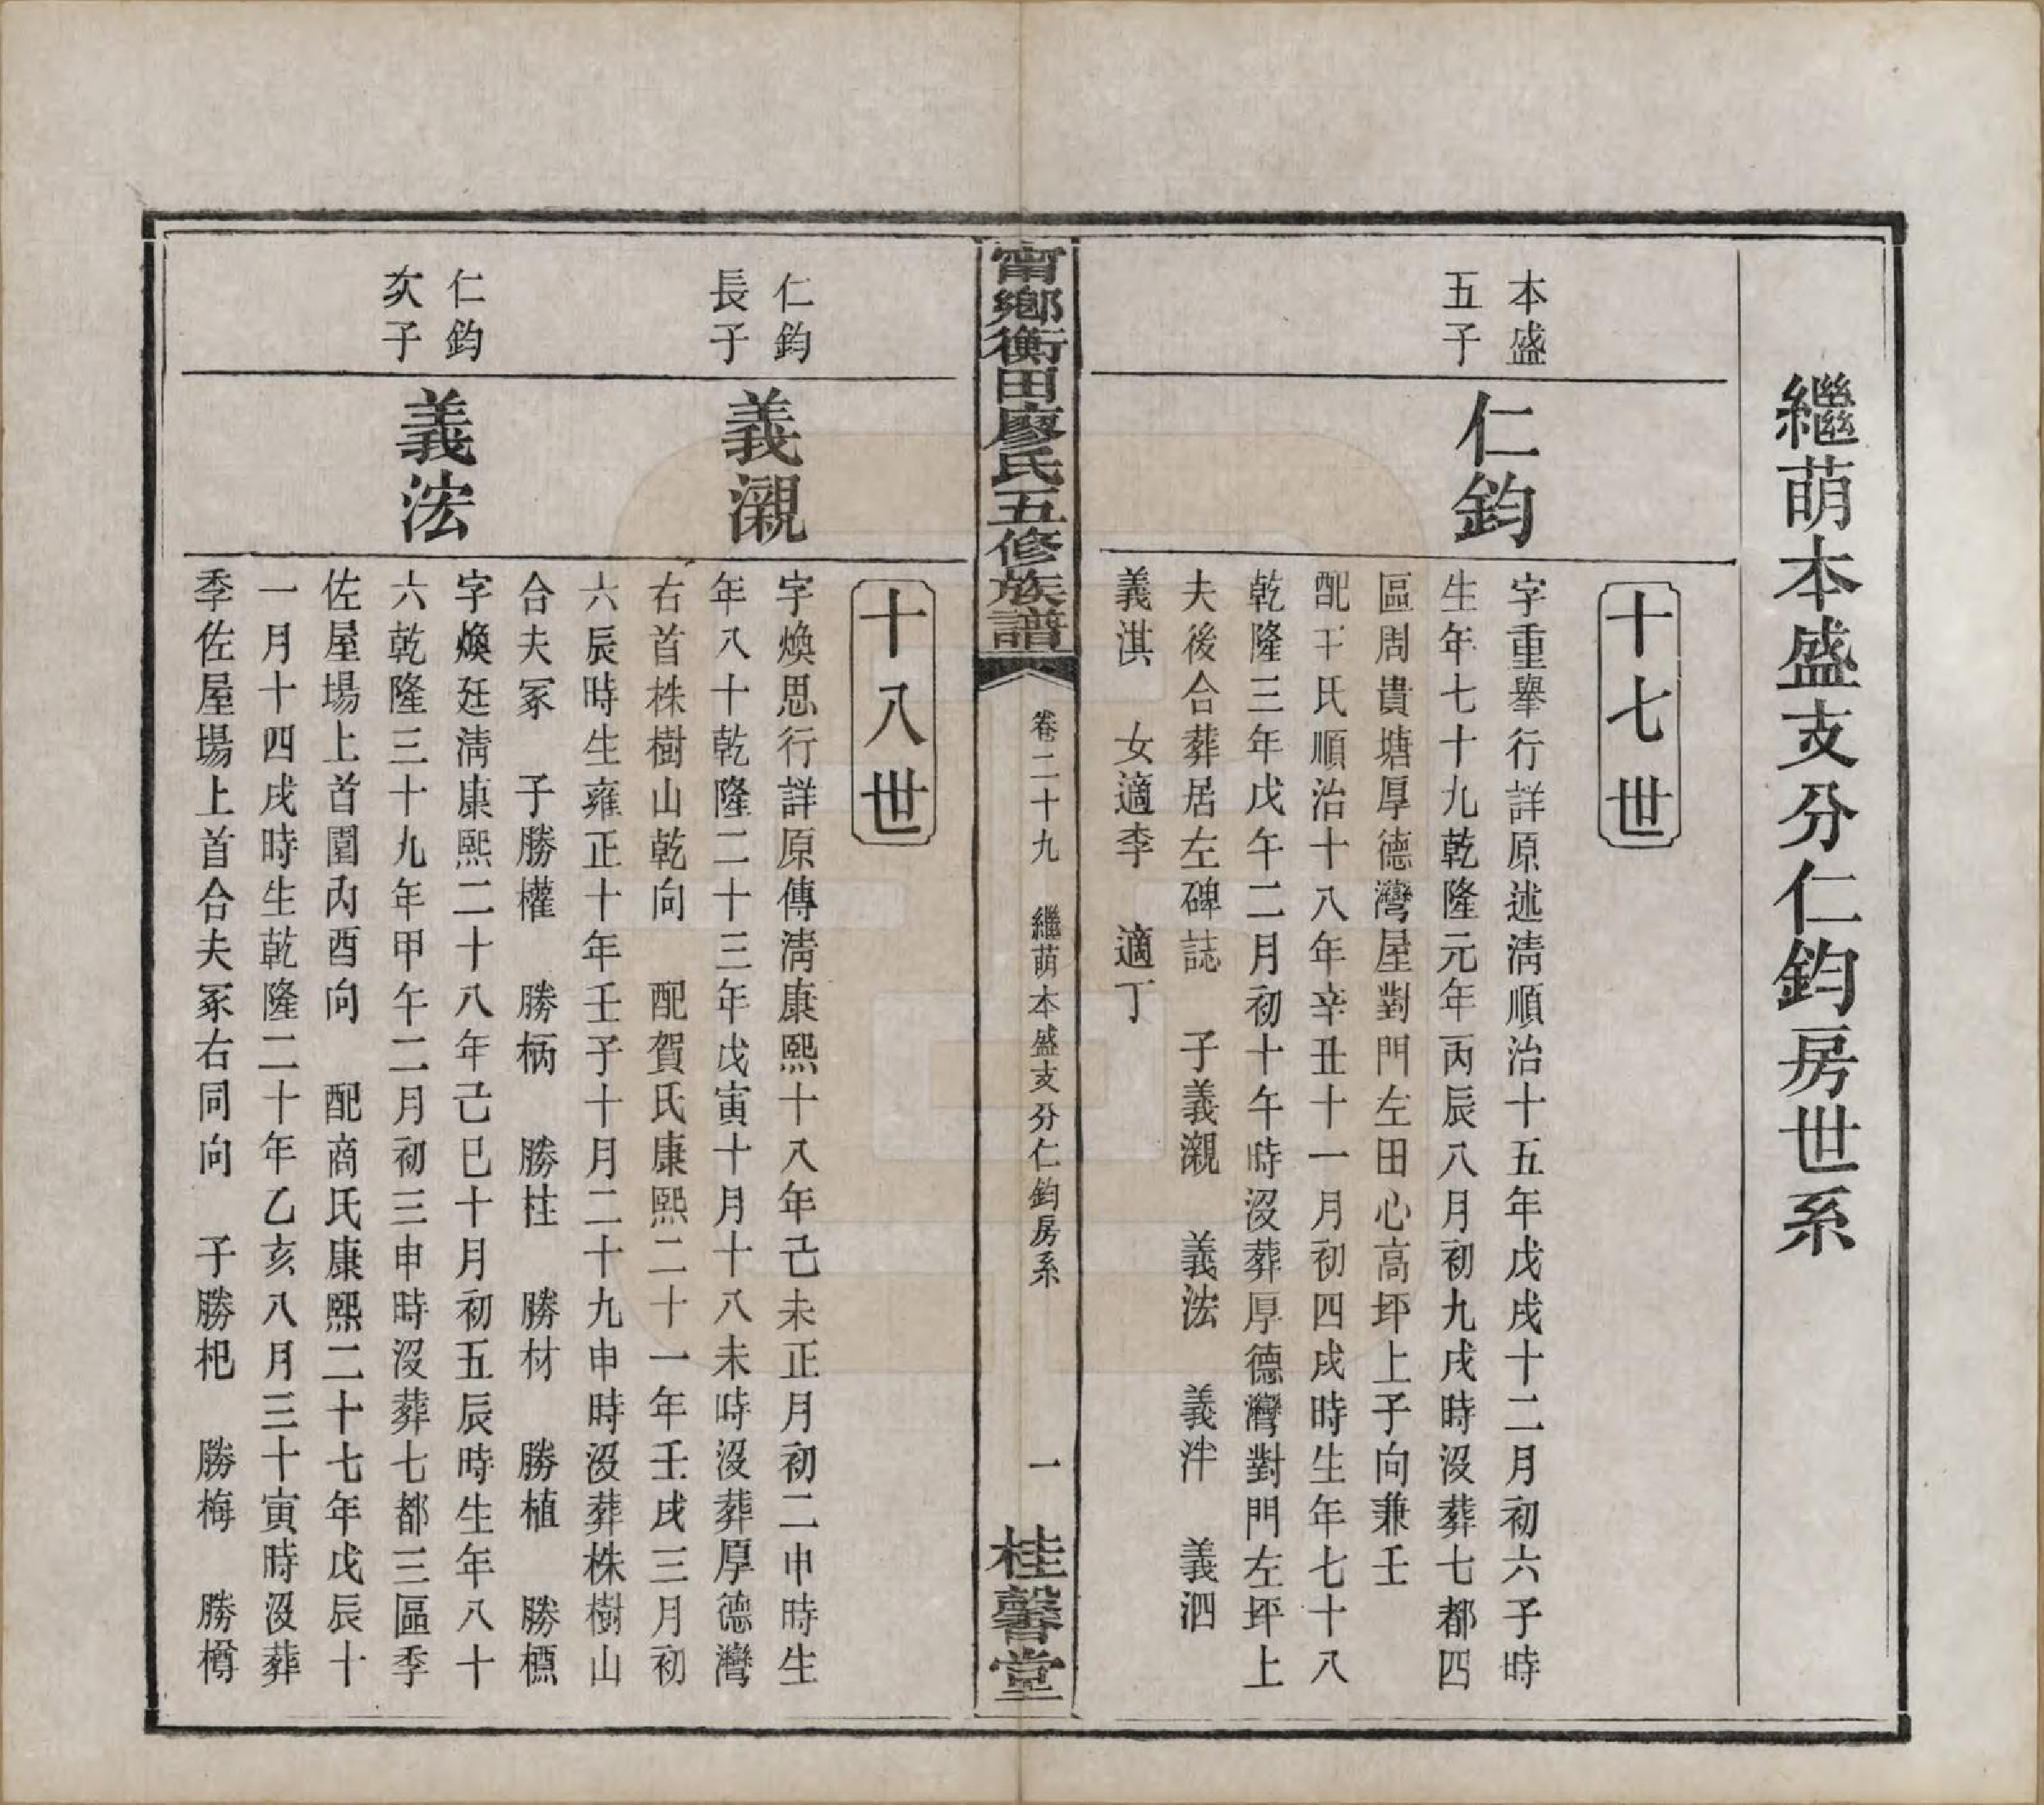 繼萌本盛支分仁鈞房世系
十七世
本盛
五子
仁鈞
字重舉行詳原述清順治十五年戊戌十二月初六子時
生年七十九乾隆元年丙辰八月初九戌時沒葬七都四
區周貴塘厚德灣屋對門左田心高坪上子向兼壬
配王氏順治十八年辛丑十一月初四戌時生年七十八
乾隆三年戊午二月初十午時沒葬厚德灣對門左坪上
夫後合葬居左碑誌　子義瀙　義浤　義泮　義泗
義淇　女適李　適丁
甯鄉衡田廖氏五修族譜
卷二十九　繼萌本盛支分仁鈞房系
一
桂馨堂
十八世
仁鈞
長子
義瀙
字煥思行詳原傳淸康熙十八年己未正月初二申時生
年八十乾隆二十三年戊寅十月十八未時沒葬厚德灣
右首株樹山乾向　配賀氏康熙二十一年壬戌三月初
六辰時生雍正十年壬子十月二十九申時沒葬株樹山
合夫冢　子勝權　勝柄　勝柱　勝材　勝植　勝標
仁鈞
次子
義浤
字煥廷淸康熙二十八年己巳十月初五辰時生年八十
六乾隆三十九年甲午二月初三申時沒葬七都三區季
佐屋場上首園內酉向　配商氏康熙二十七年戊辰十
一月十四戌時生乾隆二十年乙亥八月三十寅時沒葬
季佐屋場上首合夫冢右同向　子勝杷　勝梅　勝樽